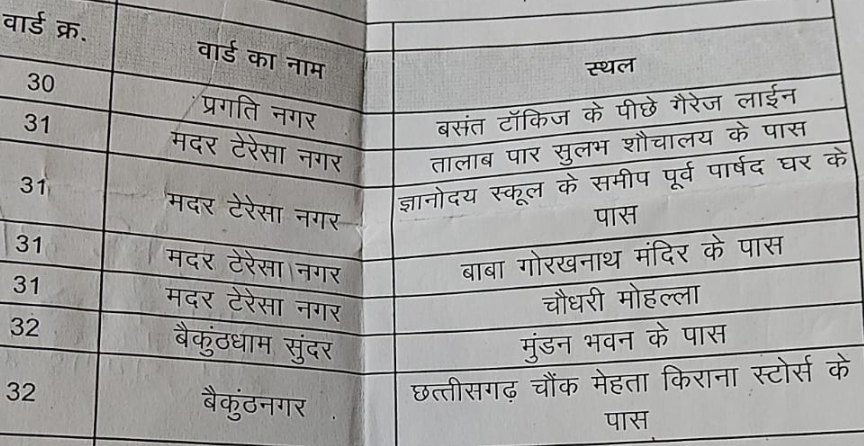 वार्ड क्र. वार्ड का नाम स्थल
30 प्रगति नगर बसंत टॉकिज के पीछे गैरेज लाईन
31 मदर टेरेसा नगर तालाब पार सुलभ शौचालय के पास
31 मदर टेरेसा नगर ज्ञानोदय स्कूल के समीप पूर्व पार्षद घर के
पास
31 मदर टेरेसा नगर बाबा गोरखनाथ मंदिर के पास
31 मदर टेरेसा नगर चौधरी मोहल्ला
32 बैकुंठधाम सुंदर मुंडन भवन के पास
32 बैकुंठनगर छत्तीसगढ़ चौंक मेहता किराना स्टोर्स के
पास